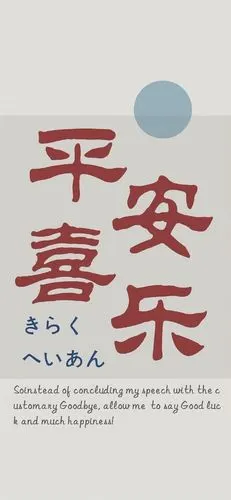 平安
喜乐
きらく
へいあん
Soinstead of concluding my speech with the c
ustomary Goodbye, allow me to say Good luc
k and much happiness!